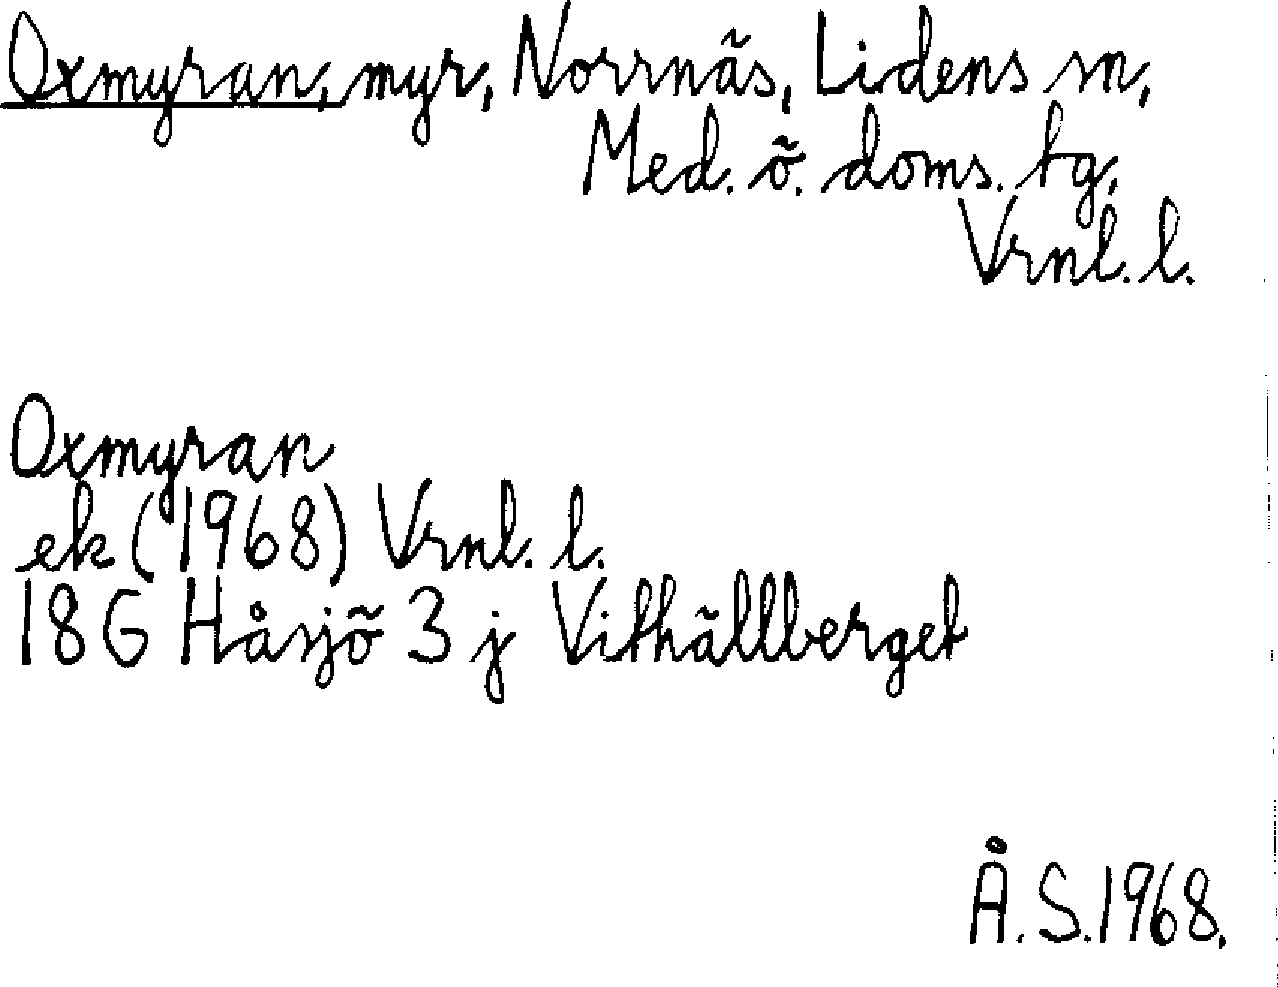 Oxmyran, myr, Norrnäs, Lidens sn,
Med. ö. doms. tg,
Vrnl. l.
Oxmyran
ek (1968) Vrnl. l.
18G Håsjö 3 j Vithällberget
Å.S.1968.